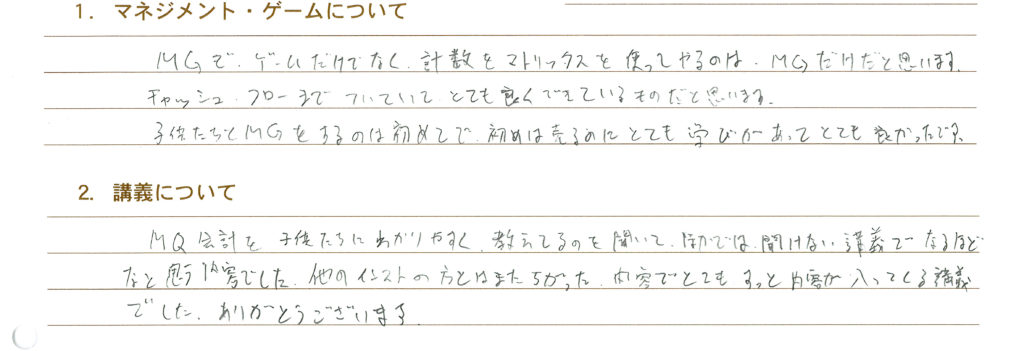 1. マネジメント・ゲームについて
MGで、ゲームだけでなく、計数をマトリックスを使ってやるのは、MGだけだと思います。
キャッシュ・フローまでついていて、とても良くできているものだと思います。
子供たちとMGをするのは初めてで、初めは売るのにとても学びがあってとても良かったです。
2. 講義について
MQ会計を子供たちにわかりやすく、教えてるのを聞いて、ほかでは聞けない講義でなるほど
なと思う内容でした。他のインストの方とはまたちがった、内容でとてもすっと内容が入ってくる講義
でした。ありがとうございます。